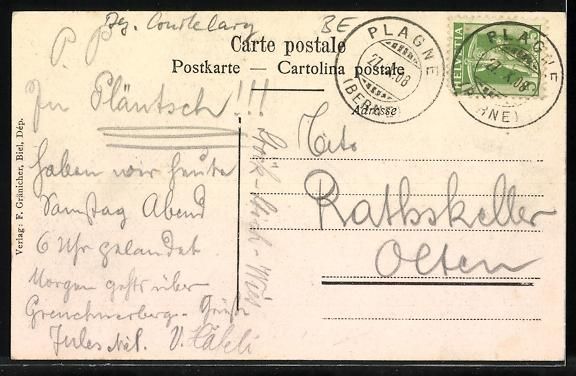 P. P.
Bez. Courtelary
BE
Carte postale
Postkarte — Cartolina postale
PLAGNE
27. X. 08
(BERNE)
HELVETIA
5
PLAGNE
27. X. 08
(BERNE)
Adresse
In Pläntsch!!!
haben wir heute
Samstag Abend
6 Uhr gelandet.
Morgen gehts über
Grenchnerberge. Grüße
Jules
Tit.
Rathskeller
Olten
Verlag: F. Gränicher, Biel, Dép.